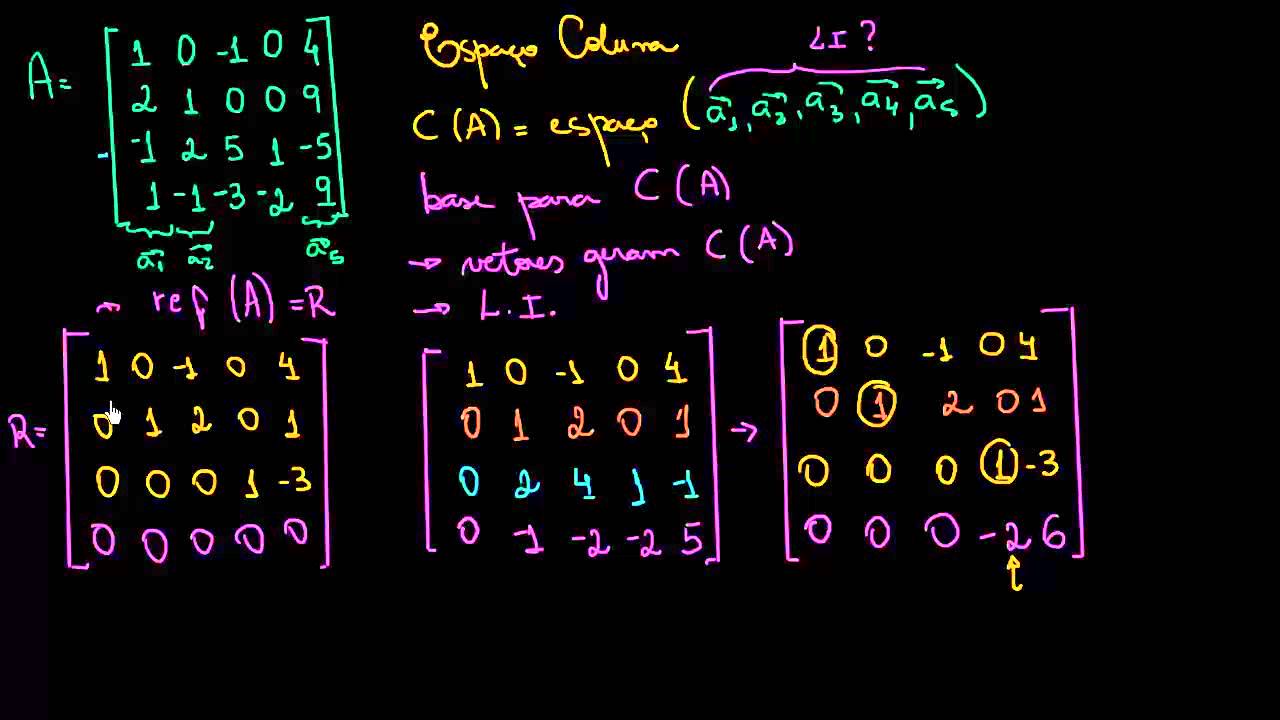 A= [1 0 -1 0 4
2 1 0 0 9
-1 2 5 1 -5
1 -1 -3 -2 9]
a⃗1 a⃗2 a⃗5
Espaço Coluna
LI?
C(A) = espaço (a⃗1, a⃗2, a⃗3, a⃗4, a⃗5)
base para C(A)
→ vetores geram C(A)
→ L.I.
→ ref(A) = R
R= [1 0 -1 0 4
0 1 2 0 1
0 0 0 1 -3
0 0 0 0 0]
[1 0 -1 0 4
0 1 2 0 1
0 2 4 1 -1
0 -1 -2 -2 5] →
[1 0 -1 0 4
0 1 2 0 1
0 0 0 1 -3
0 0 0 -2 6]
↑